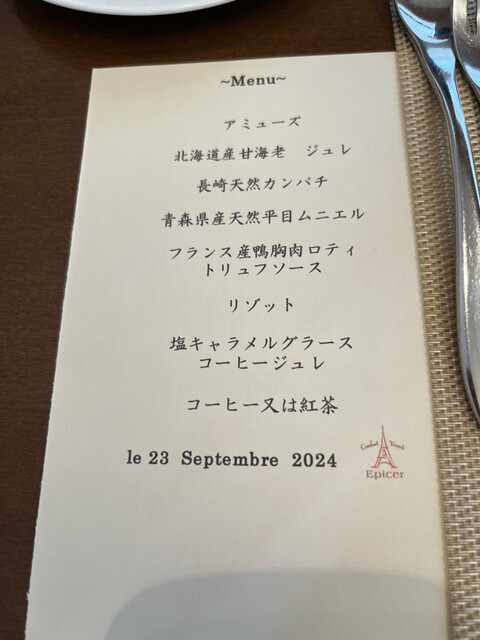 ~Menu~
アミューズ
北海道産甘海老　ジュレ
長崎天然カンパチ
青森県産天然平目ムニエル
フランス産鴨胸肉ロティ
トリュフソース
リゾット
塩キャラメルグラース
コーヒージュレ
コーヒー又は紅茶
le 23 Septembre 2024
Epicer